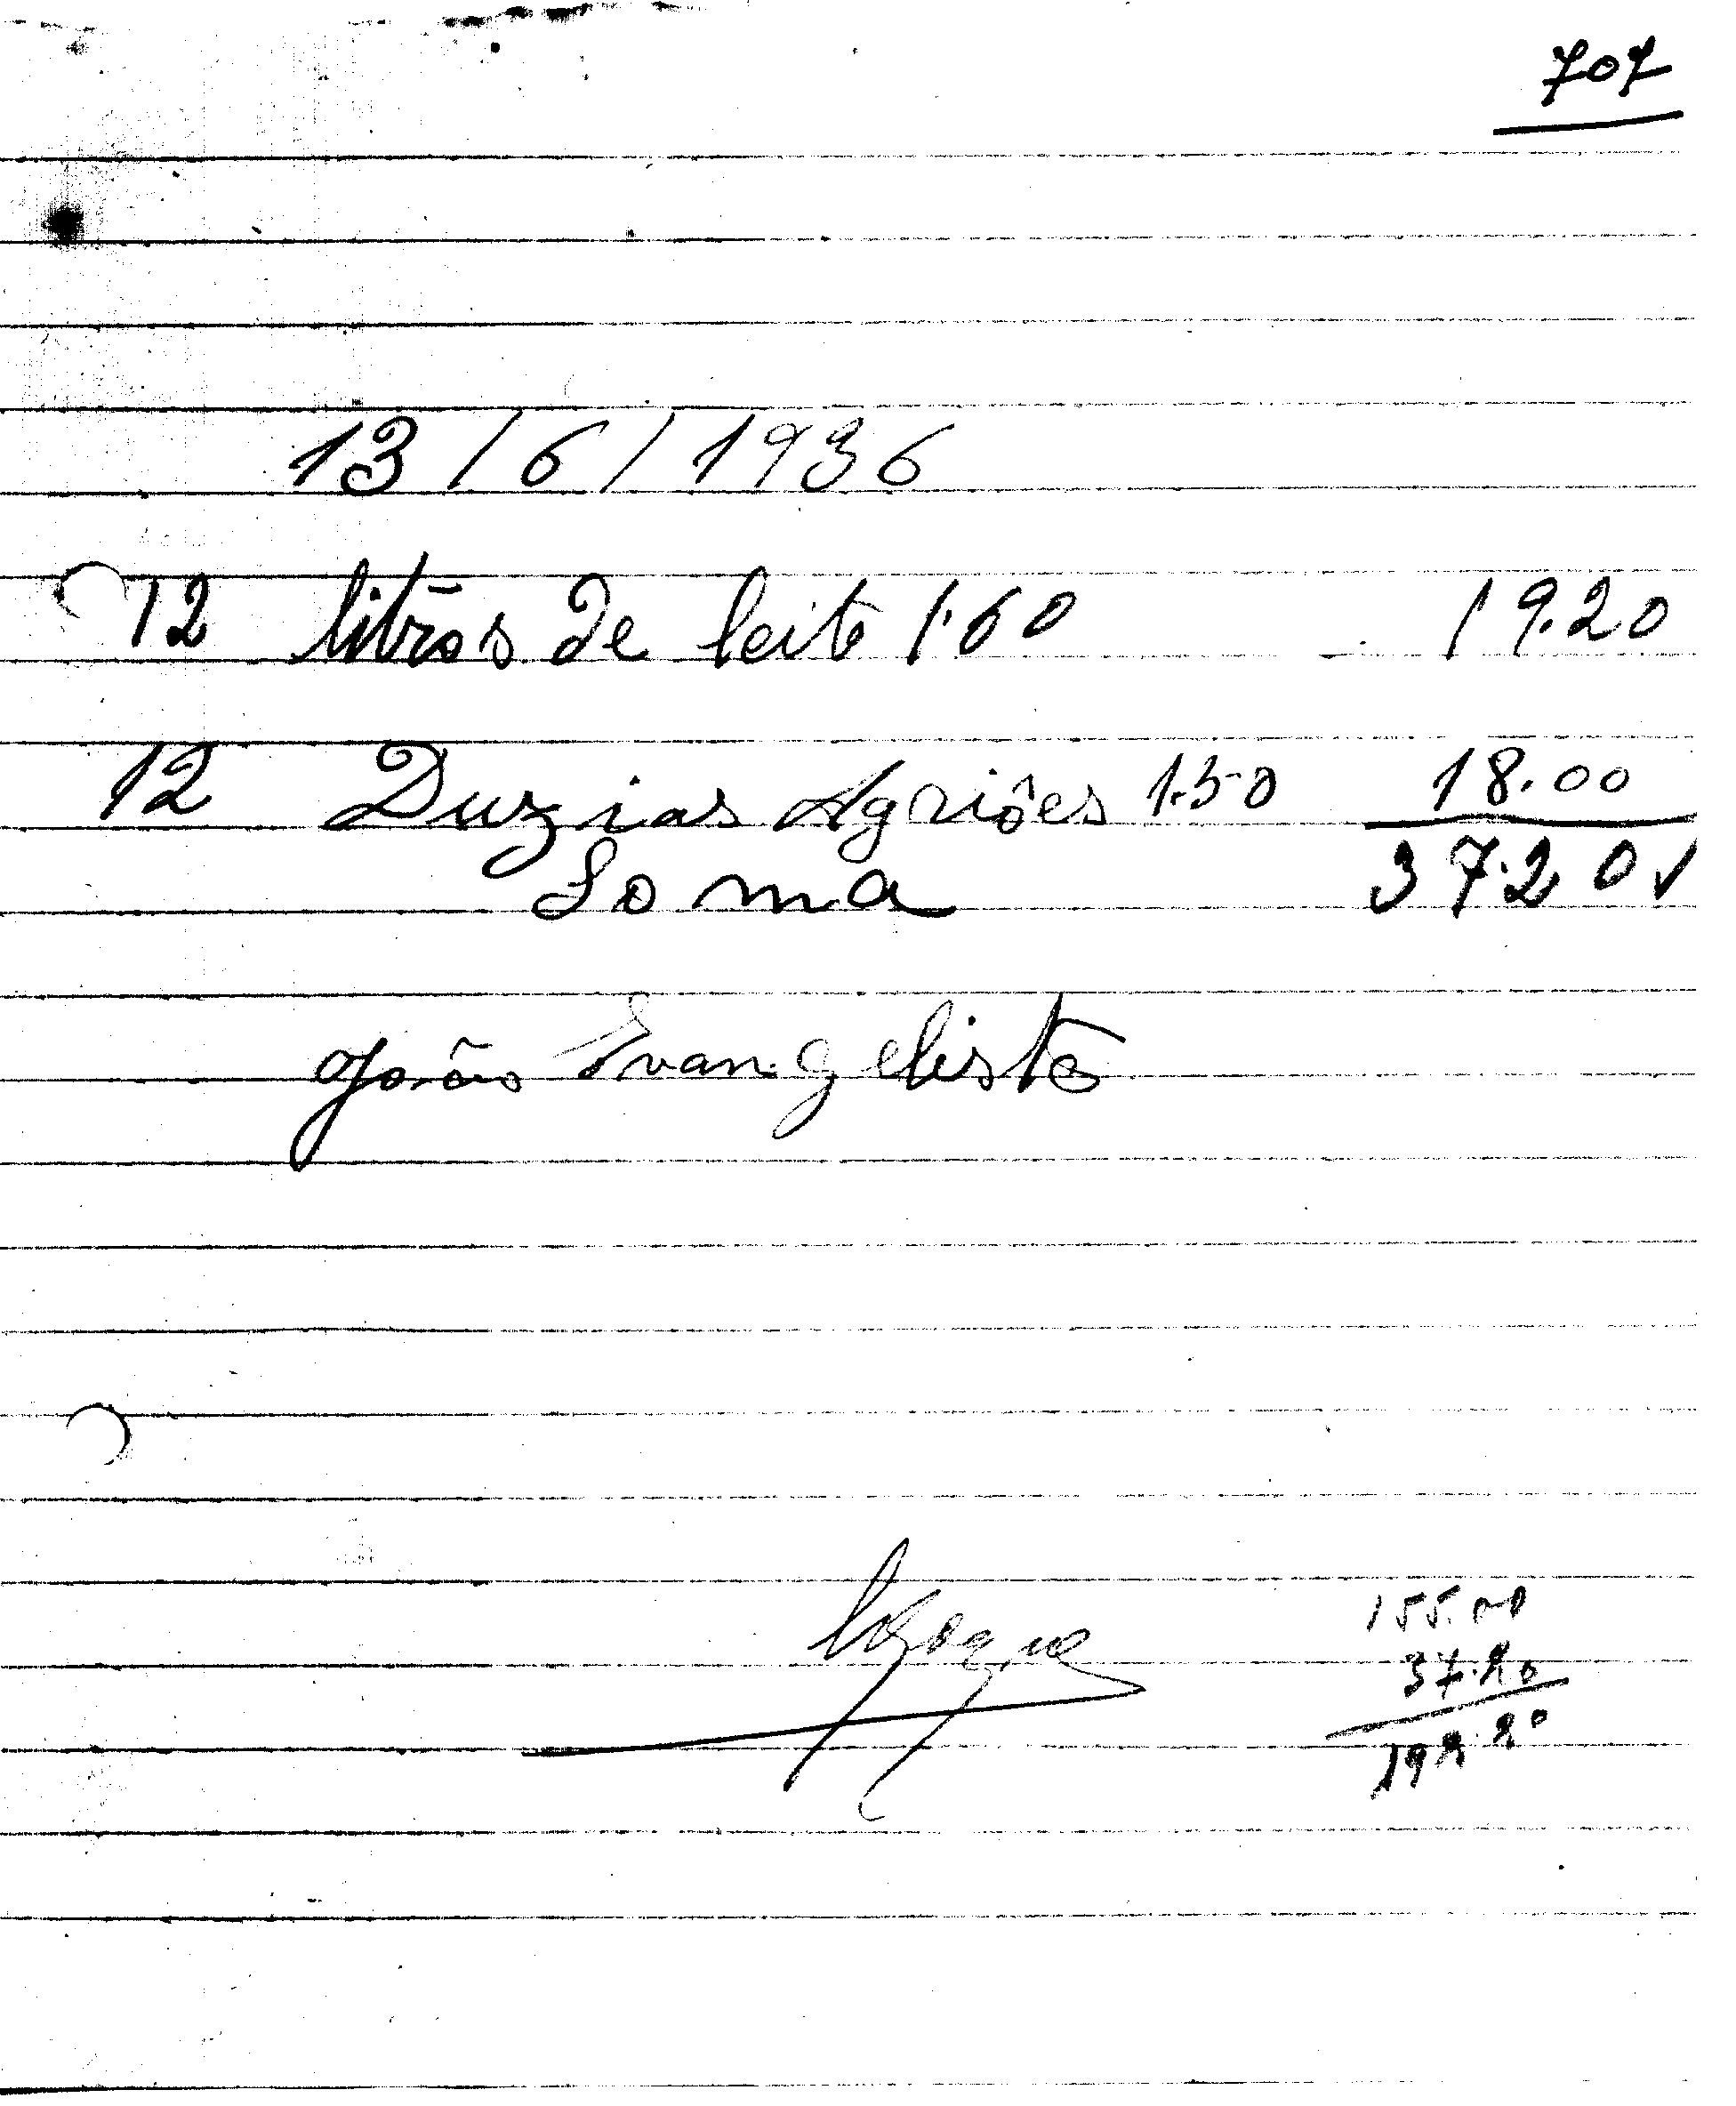 707
13/6/1936
12 litros de leite 1.60 19.20
12 Duzias Agriões 1.50 18.00
Soma 37.20 ✓
João Evangelista
155.00
37.20
192.20